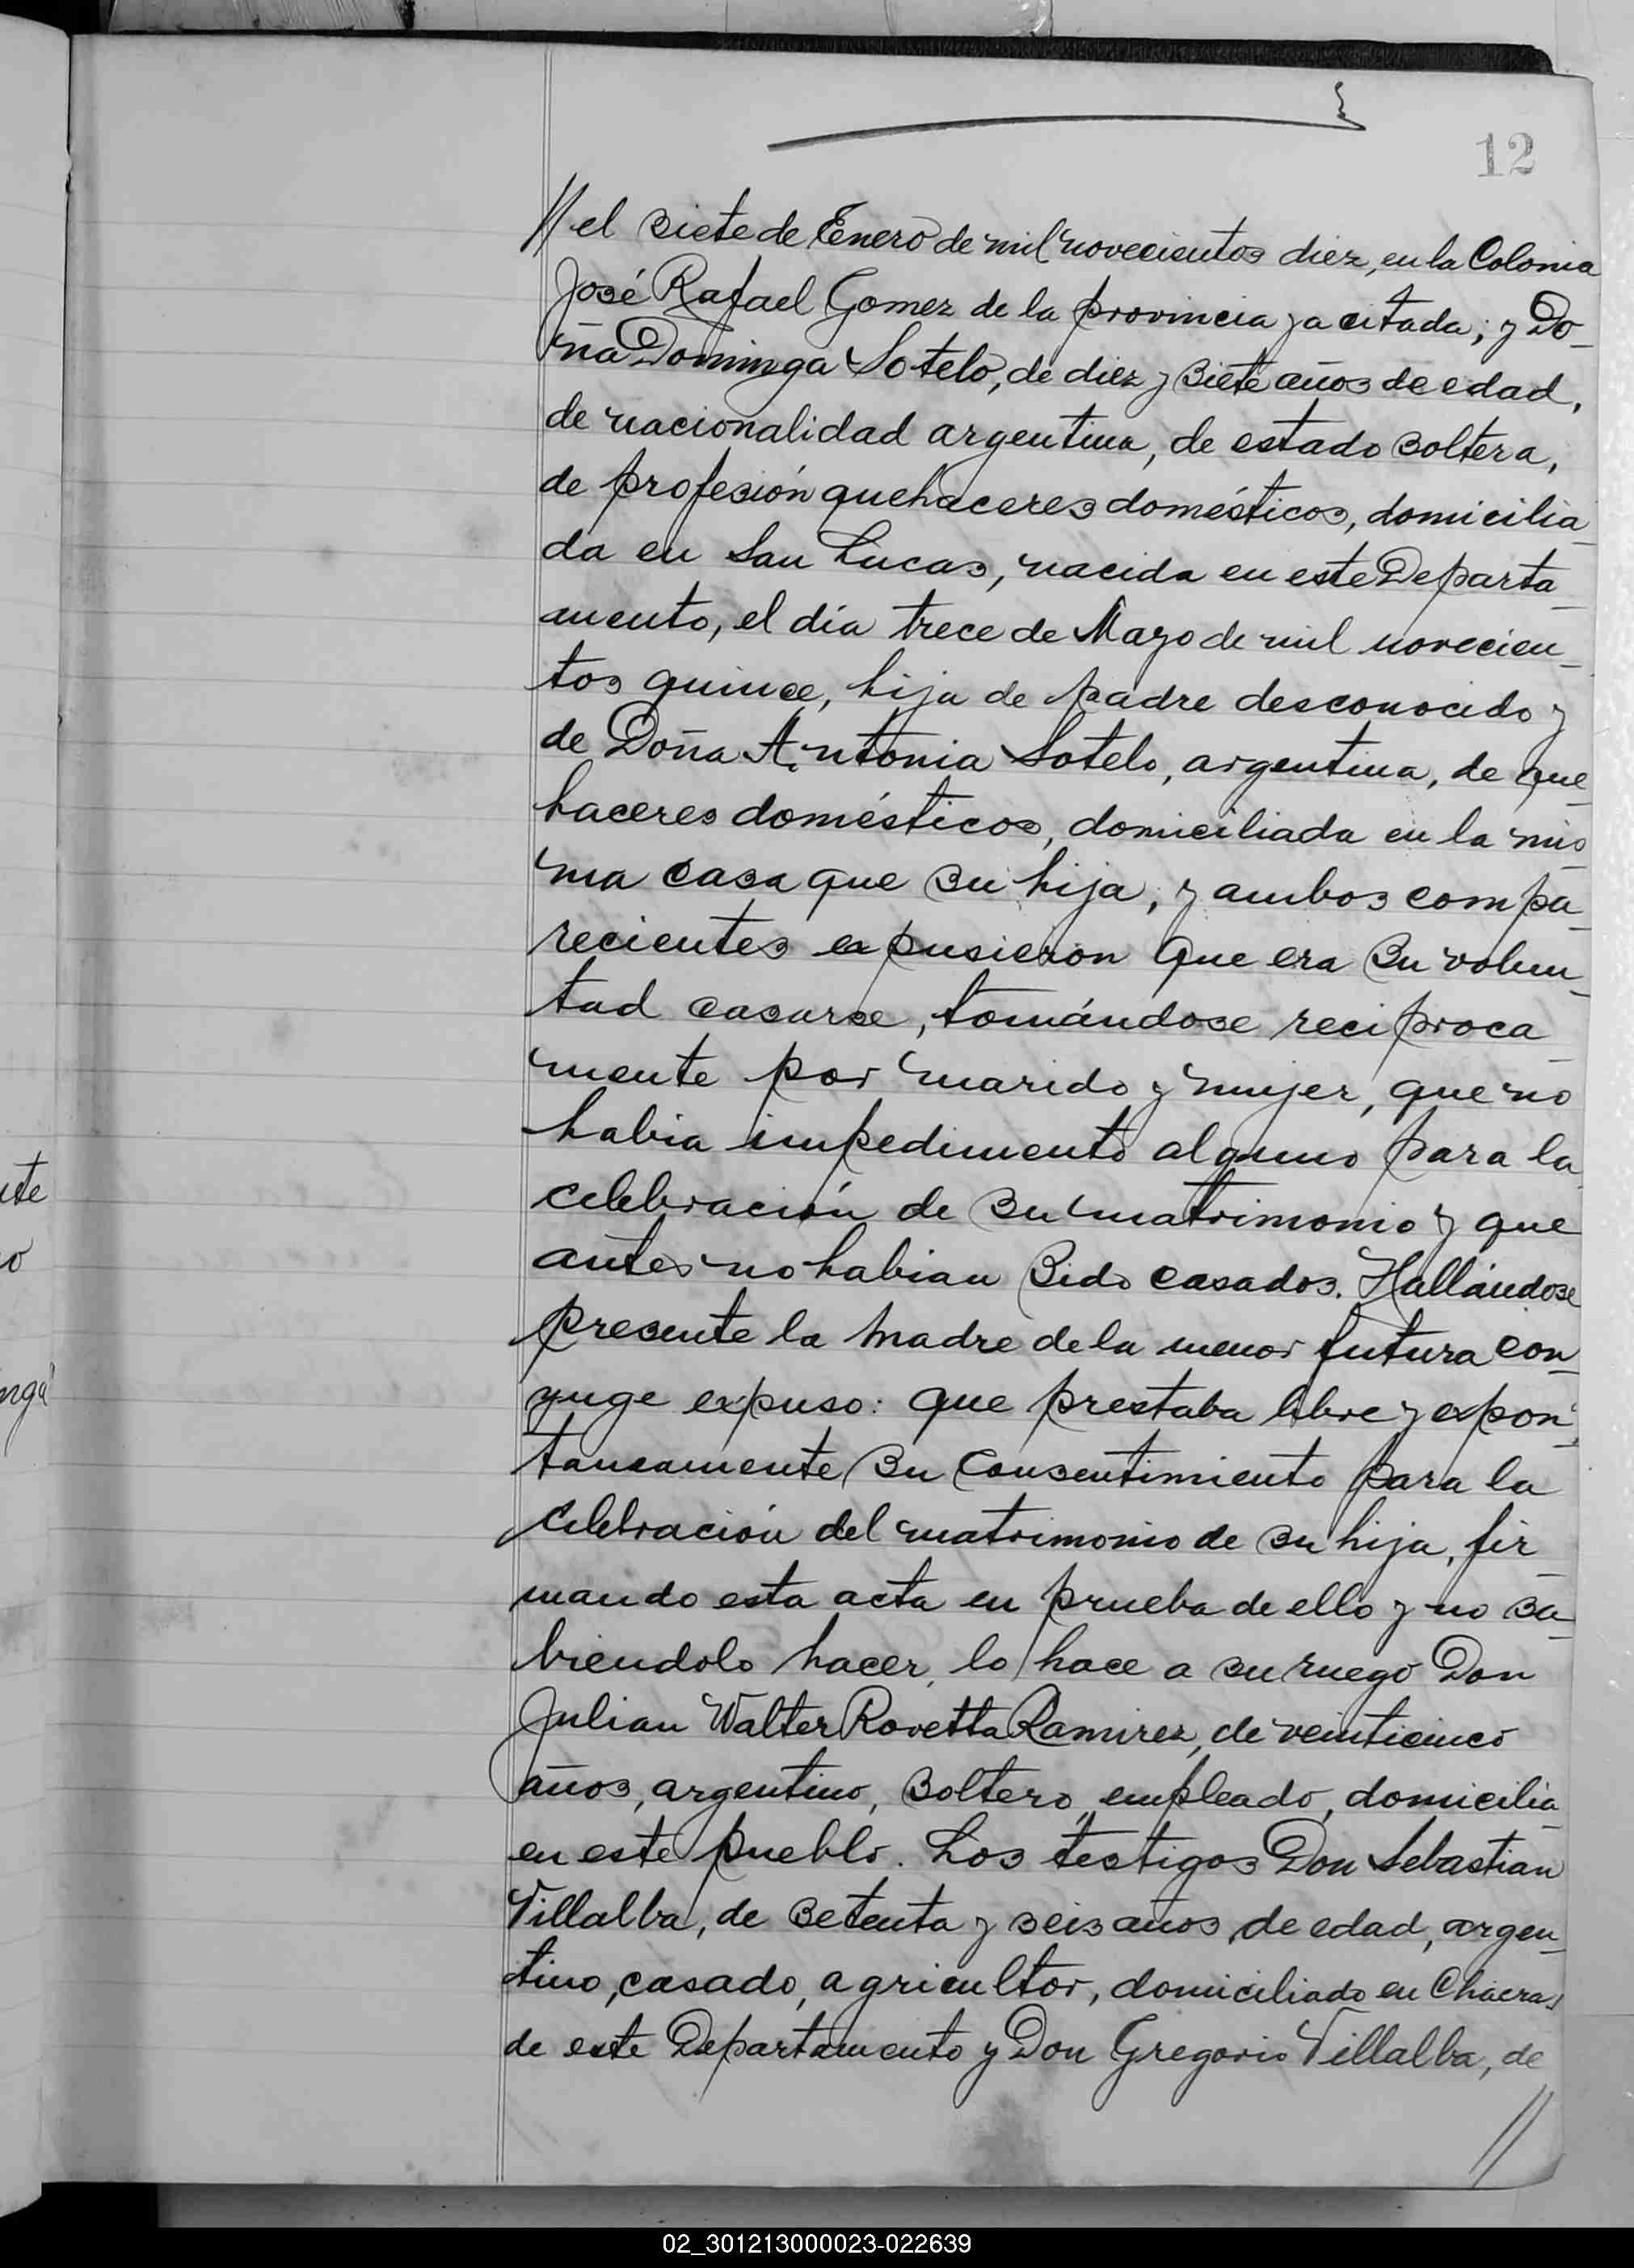 12
// el siete de Enero de mil novecientos diez, en la Colonia
José Rafael Gomez de la provincia ya citada; y Do_
ña Dominga Sotelo, de diez y siete años de edad,
de nacionalidad argentina, de estado soltera,
de profesión quehaceres domésticos, domicilia_
da en San Lucas, nacida en este Departa_
mento, el día trece de Mayo de mil novecien_
tos quince, hija de padre desconocido y
de Doña Antonia Sotelo, argentina, de que_
haceres domésticos, domiciliada en la mis_
ma casa que su hija; y ambos compa_
recientes expusieron que era su volun_
tad casarse, tomándose reciproca_
mente por marido y mujer, que no
habia impedimento alguno para la
celebración de su matrimonio y que
antes no habian sido casados. Hallándose
presente la madre de la menor futura con_
yuge expuso: que prestaba libre y expon_
taneamente su consentimiento para la
celebración del matrimonio de su hija, fir_
mando esta acta en prueba de ello y no sa_
biendolo hacer, lo hace a su ruego Don
Julian Walter Rovetta Ramirez, de veinticinco
años, argentino, soltero, empleado, domicilia_
en este pueblo. Los testigos Don Sebastian
Villalba, de setenta y seis años de edad, argen_
tino, casado, agricultor, domiciliado en Chacras
de este Departamento y Don Gregorio Villalba, de
//
02_301213000023-022639